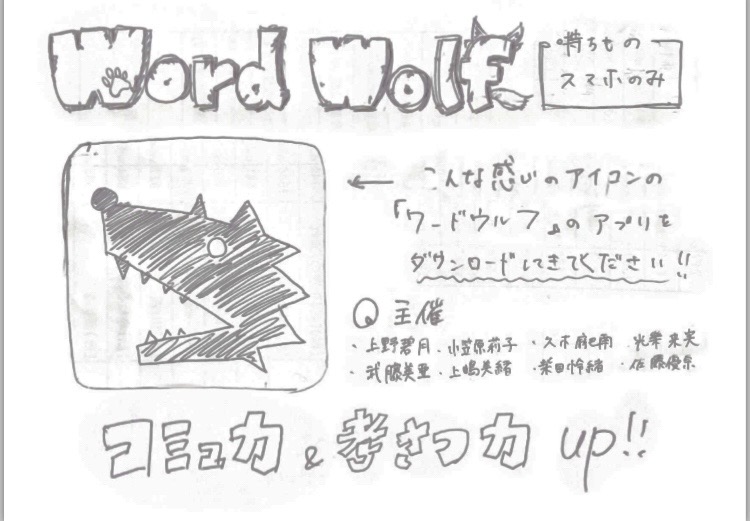 Word Wolf
持ちもの
スマホのみ
← こんな感じのアイコンの
「ワードウルフ」のアプリを
ダウンロードしてきてください!!
主催
・上野碧月 ・小笠原莉子 ・久木
・武藤美亜 ・上嶋美緒 ・柴田怜緒 ・佐藤優奈
コミュ力 & 考さつ力 up!!